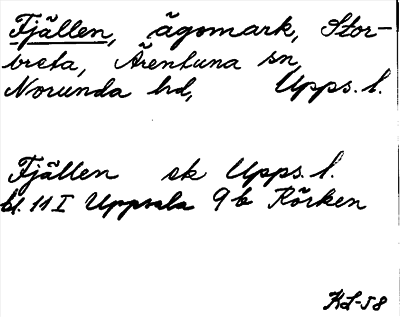 Fjällen, ägomark, Stor-
vreta, Ärentuna sn,
Norunda hd, Upps. l.
Fjällen sk Upps. l.
bl. 11 I Uppsala 9b Rörken
KL-58